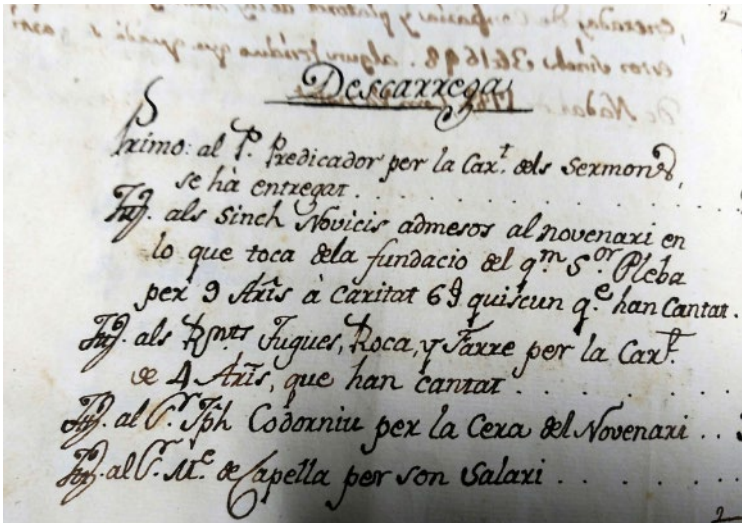 Descarrega
Primo: al P. Predicador per la Car.t dels Sermons,
se hà entregat . . . . . . .
It. als Sinch Novicis admesos al novenari en
lo que toca dela fundacio del q.m S.or Pleba
per 9 Ar.s à caritat 6 quiscun q.e han Cantat.
It. als R.nts Fugues, Roca, y Farre per la Car.t
de 4 Ar.s, que han cantat . . . . . .
It. al S.r Jph Codorniu per la Cera del Novenari . .
It. al S.r M.e de Capella per son Salari . . . . . .